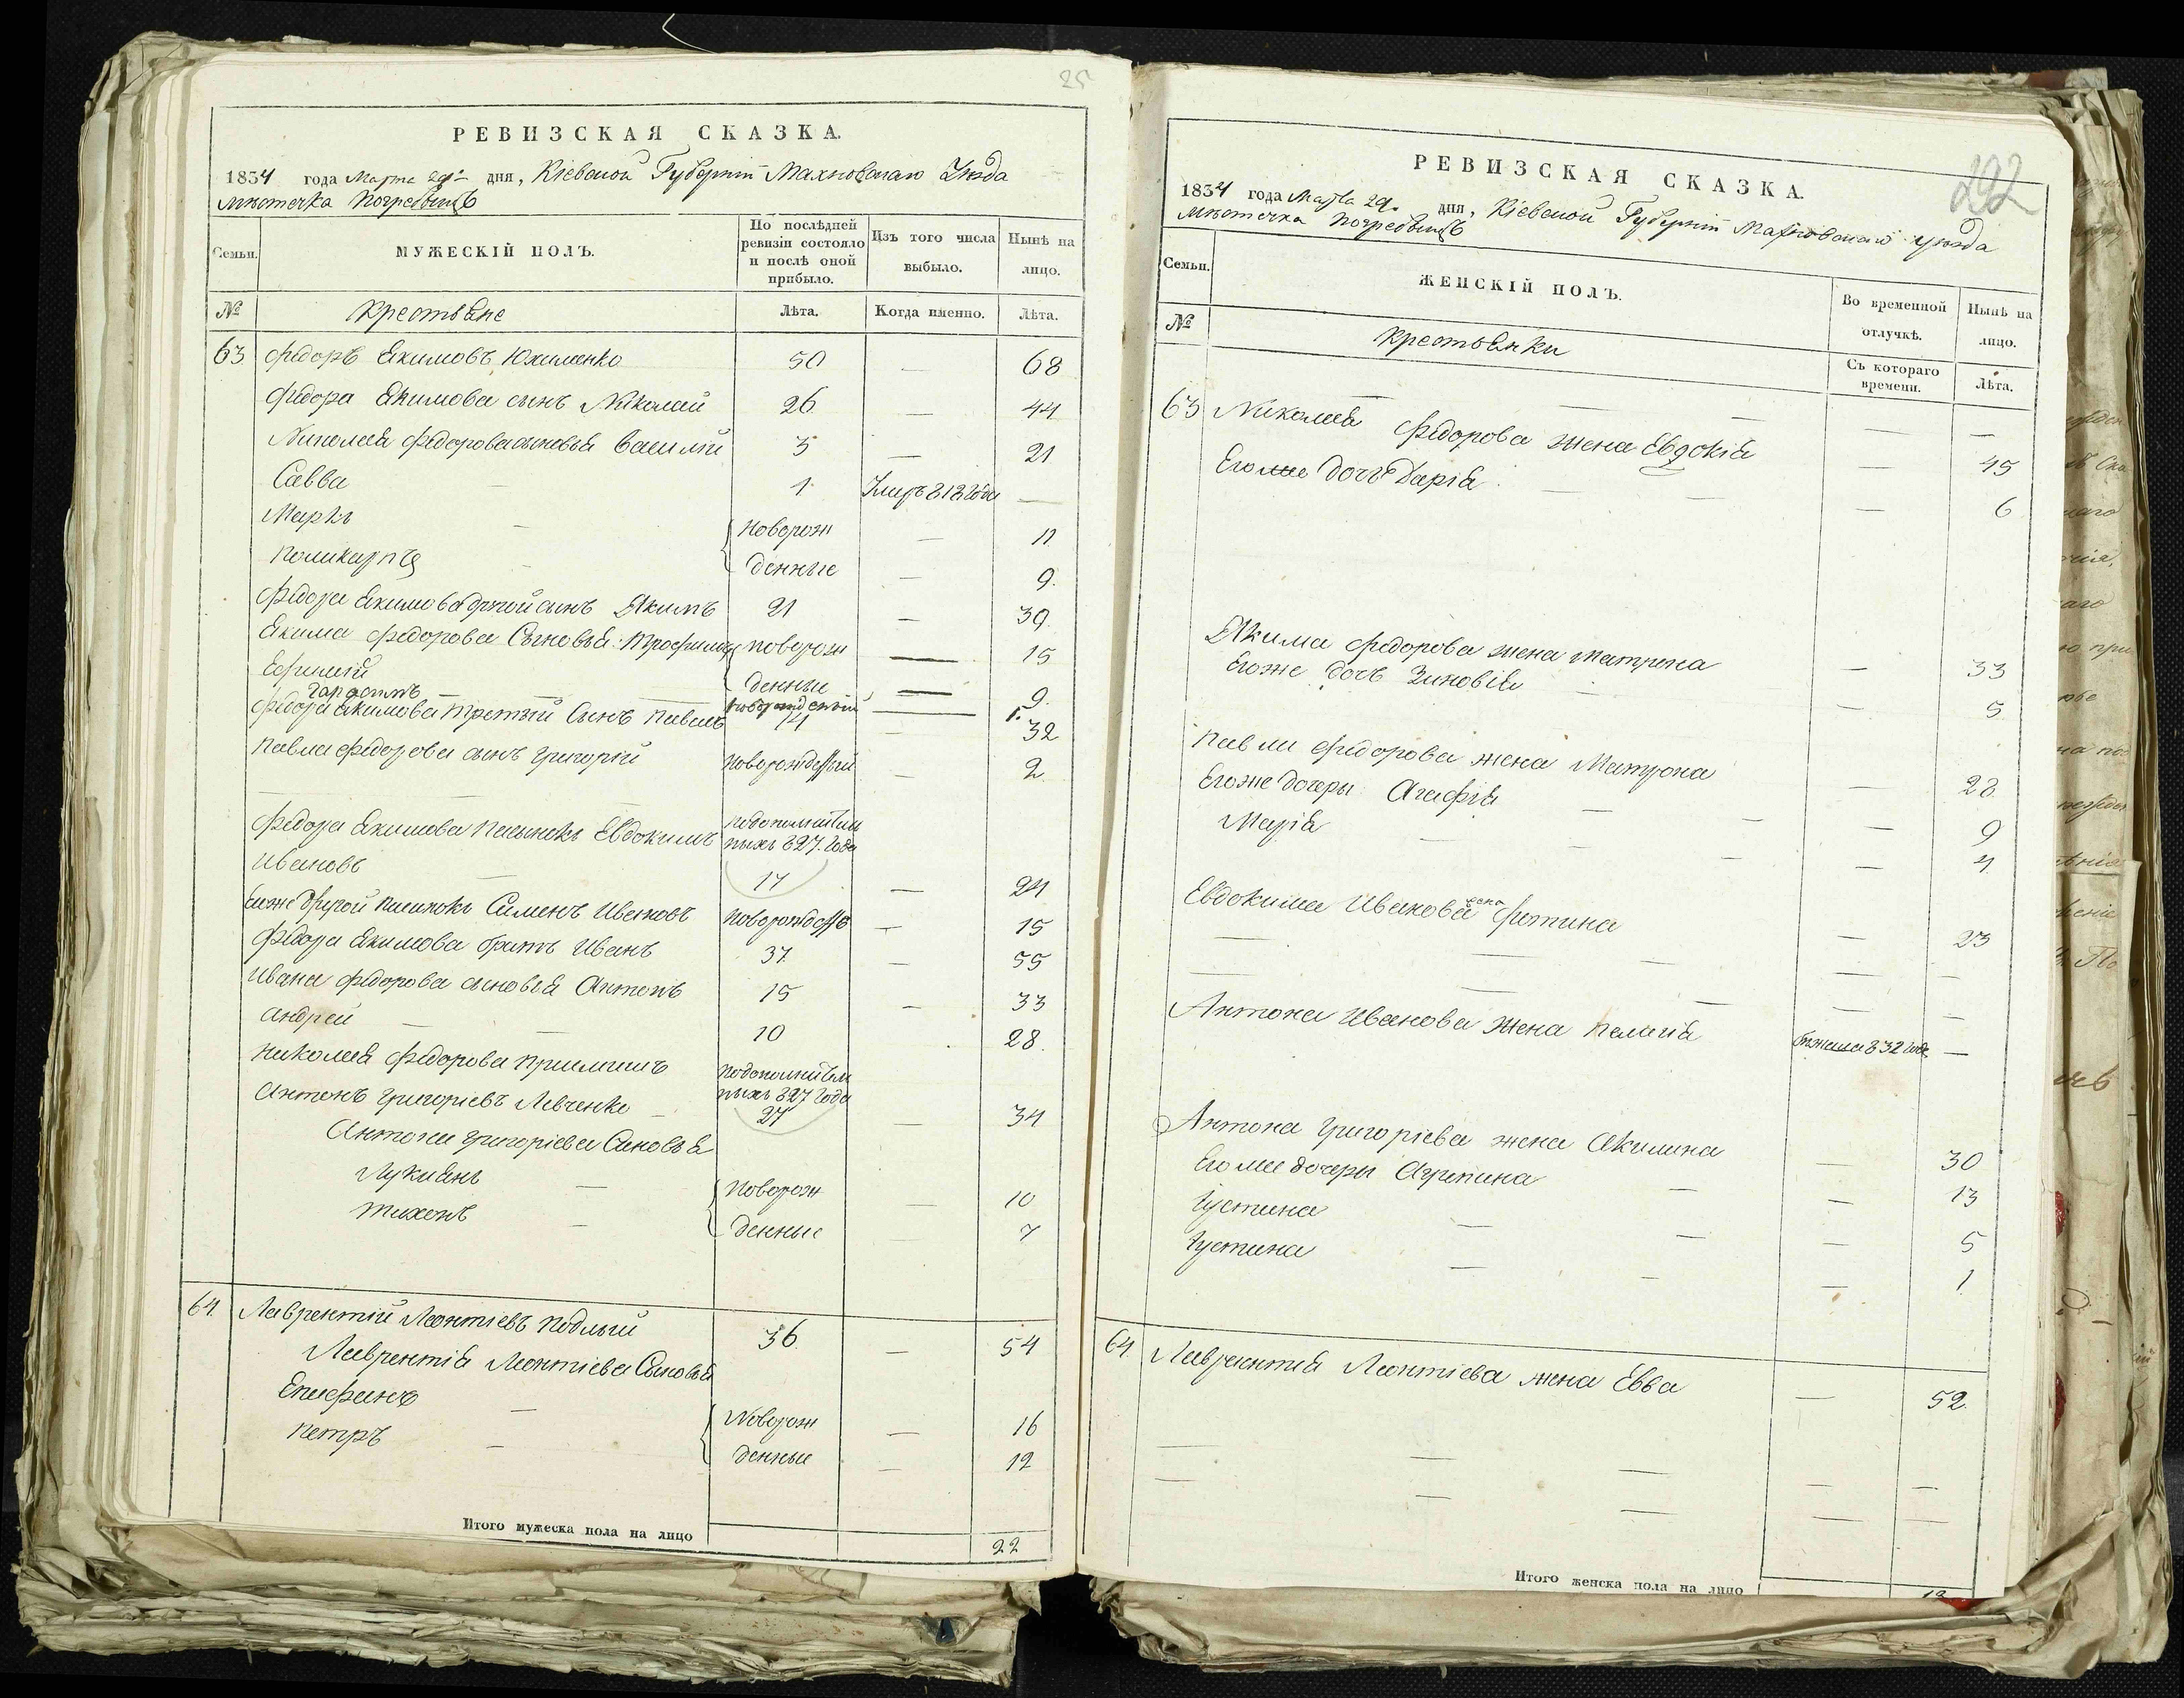 25
РЕВИЗСКАЯ СКАЗКА.
1834 года Марта 29го дня, Кіевской Губерніи Махновскаго Уѣзда
мѣстечка Погребыщъ
Семьи.
МУЖЕСКІЙ ПОЛЪ.
По послѣдней ревизіи состояло и послѣ оной прибыло.
Изъ того числа выбыло.
Нынѣ на лицо.
№ Крестьяне Лѣта. Когда именно. Лѣта.
63 Федоръ Якимовъ Юхименко 50 — 68
Федора Якимова сынъ Николай 26 — 44
Николая Федорова сыновья Василій 3 — 21
Савва 1 Умеръ 818 года —
Марко — Новорож — 11
Поликарпъ — денные — 9.
Федора Якимова другой сынъ Якимъ 21 — 39
Якима Федорова Сыновья: Трофимъ новорож — 15
Ефимій денные — 9.
новорожденный — 1.
Федора Якимова третый Сынъ Павелъ 14 — 32
Павла Федорова сынъ Григорій новорожденный — 2
Федора Якимова пасынокъ Евдокимъ
Ивановъ — 827. года
17 — 24
Егоже другой пасынокъ Сименъ Ивановъ новорожденъ — 15
Федора Якимова братъ Иванъ 37 — 55
Ивана Федорова сыновья Антонъ 15 — 33
Андрей — 10 28.
Николая Федорова приймышъ
Антонъ Григоріевъ Левченко — 827 года
27 — 34
Антона Григоріева Сыновья
Лукіянъ — Новорож — 10
Тихонъ — денные — 7
64. Лаврентій Леонтіевъ Подлый 36. — 54
Лаврентія Леонтіева Сыновья
Епифанъ — Новорож — 16
Петръ — денные — 12
Итого мужеска пола на лицо 22
292
РЕВИЗСКАЯ СКАЗКА.
1834 года Марта 29. дня, Кіевской Губерніи Махновскаго уѣзда
мѣстечка Погребыщъ
Семьи.
ЖЕНСКІЙ ПОЛЪ.
Во временной отлучкѣ.
Нынѣ на лицо.
№ Крестьянки Съ котораго времени. Лѣта.
— — — —
63 Николая Федорова жена Евдокія — 45
Егоже дочь Дарія — — 6
Якима Федорова жена Матрена — 33
Егоже дочь Зиновія — — 5
Павла Федорова жена Матрона — 28
Егоже дочеры Агафія — — 9
Марія — — — 4
Евдокима Иванова жена Фотина — 23
— — — — —
— — — — —
Антона Иванова жена Пелагія бѣжала 832 года —
Антона Григоріева жена Акилина — 30
Егоже дочеры Агрепина — — 13
Іустина — — — 5
Іустина — — — 1
64. Лаврентія Леонтіева жена Евва — 52.
— — — — —
— — — — —
Итого женска пола на лицо